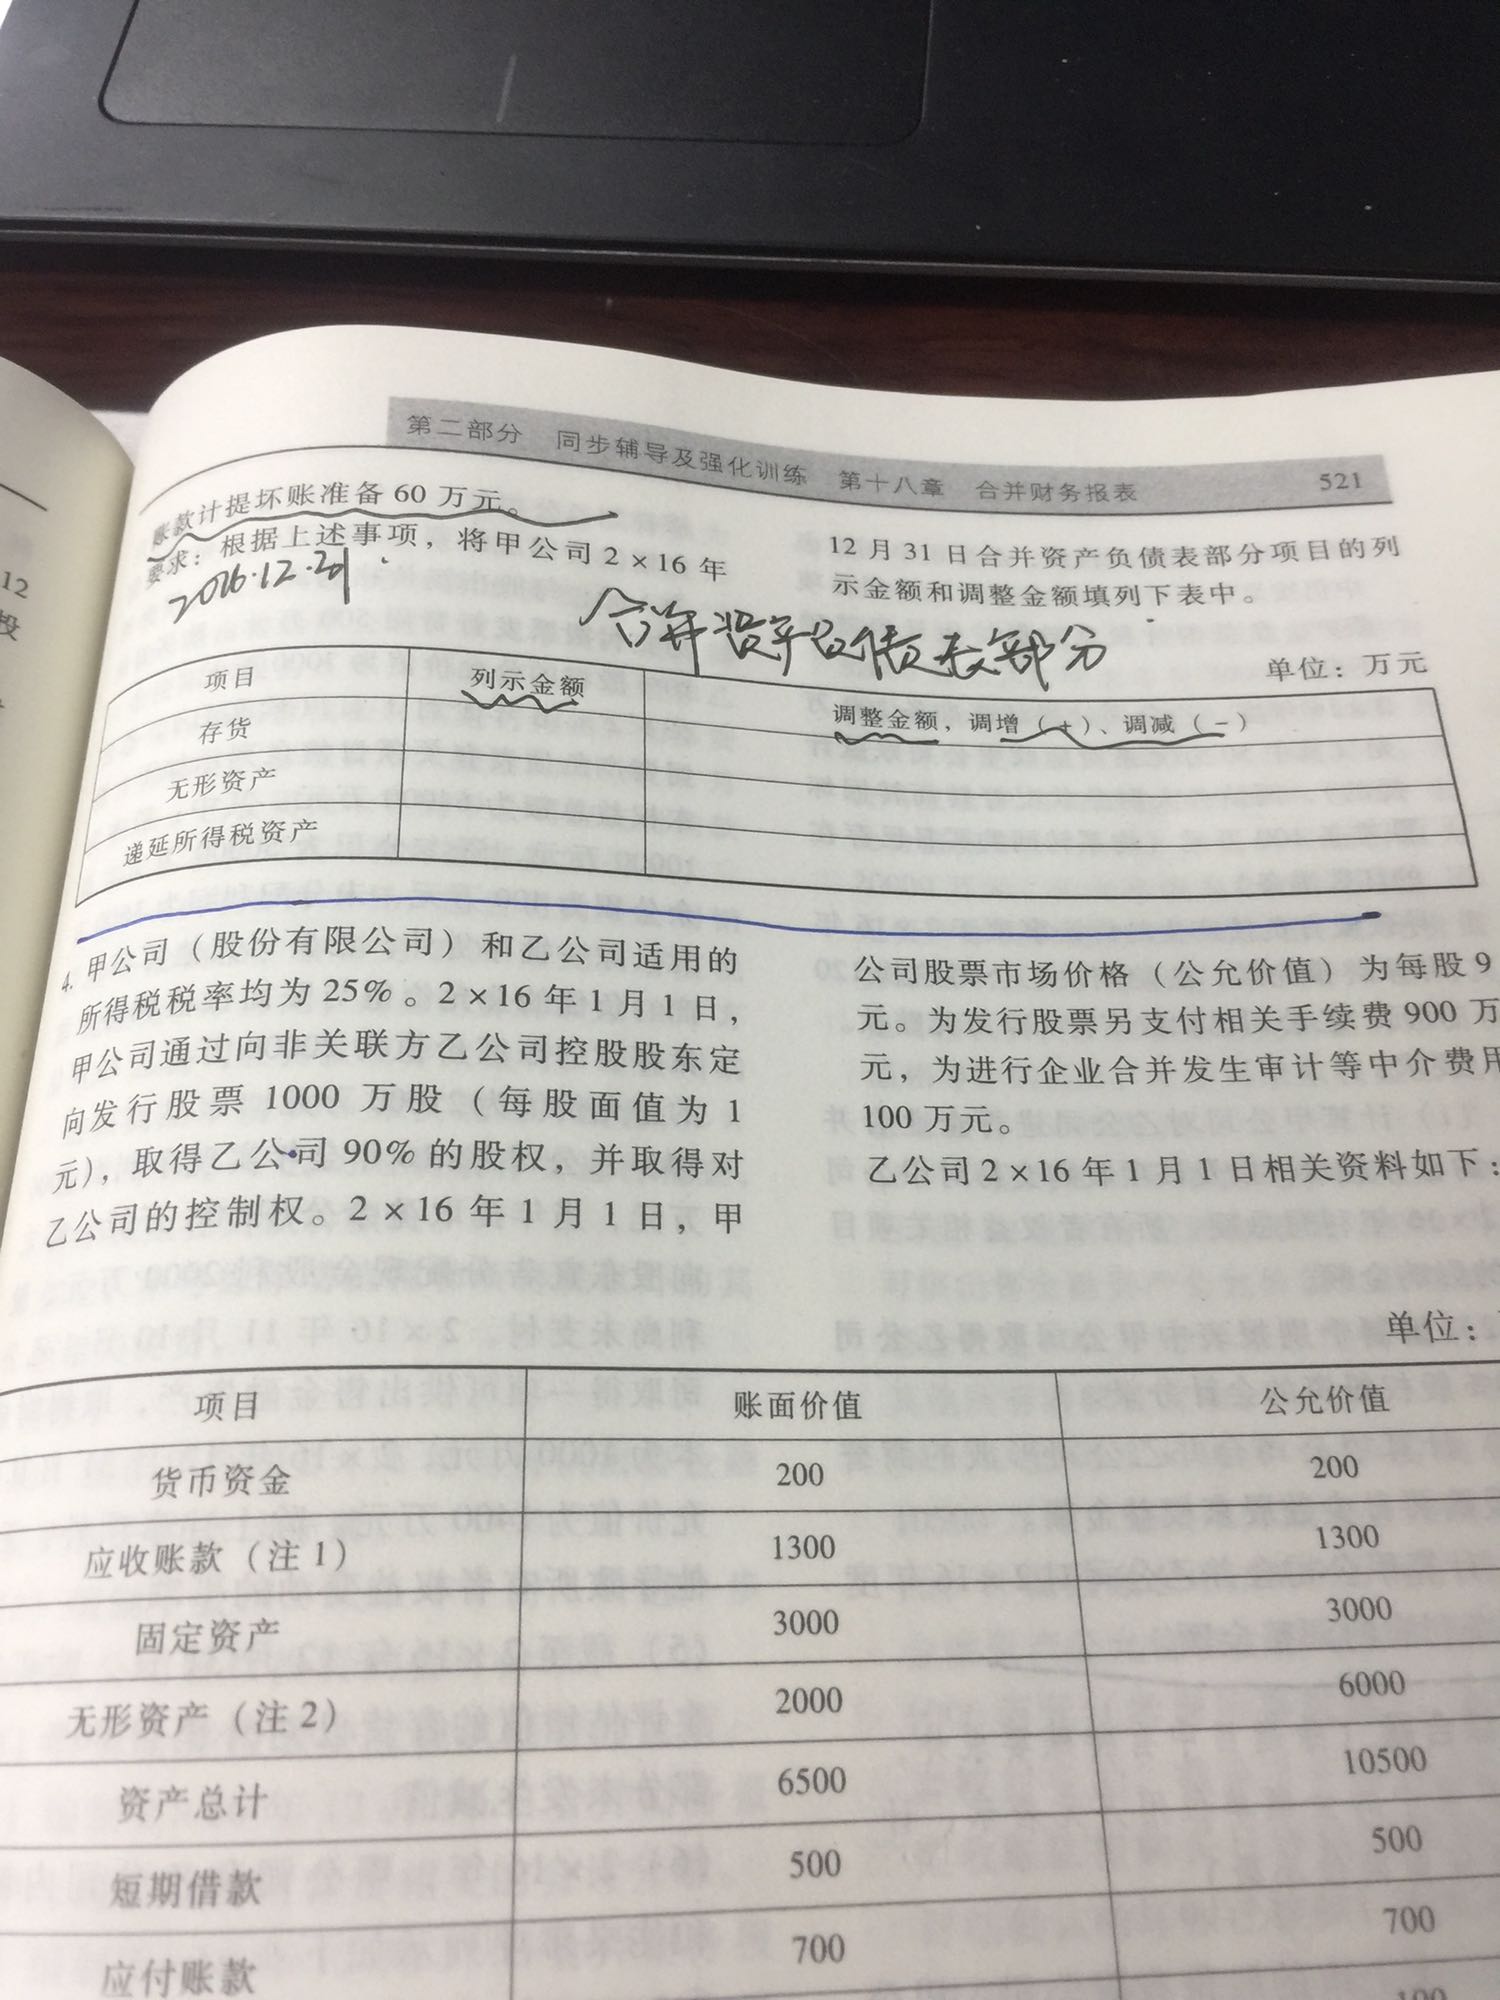 第二部分 同步辅导及强化训练 第十八章 合并财务报表 521
账款计提坏账准备60万元。
要求：根据上述事项，将甲公司2×16年
12月31日合并资产负债表部分项目的列
示金额和调整金额填列下表中。
2016.12.31
合并资产负债表部分
单位：万元
项目 列示金额 调整金额，调增（+）、调减（-）
存货
无形资产
递延所得税资产
4. 甲公司（股份有限公司）和乙公司适用的
所得税税率均为25%。2×16年1月1日，
甲公司通过向非关联方乙公司控股股东定
向发行股票1000万股（每股面值为1
元），取得乙公司90%的股权，并取得对
乙公司的控制权。2×16年1月1日，甲
公司股票市场价格（公允价值）为每股9
元。为发行股票另支付相关手续费900万
元，为进行企业合并发生审计等中介费用
100万元。
乙公司2×16年1月1日相关资料如下：
单位：
项目 账面价值 公允价值
货币资金 200 200
应收账款（注1） 1300 1300
固定资产 3000 3000
无形资产（注2） 2000 6000
资产总计 6500 10500
短期借款 500 500
应付账款 700 700
12
投